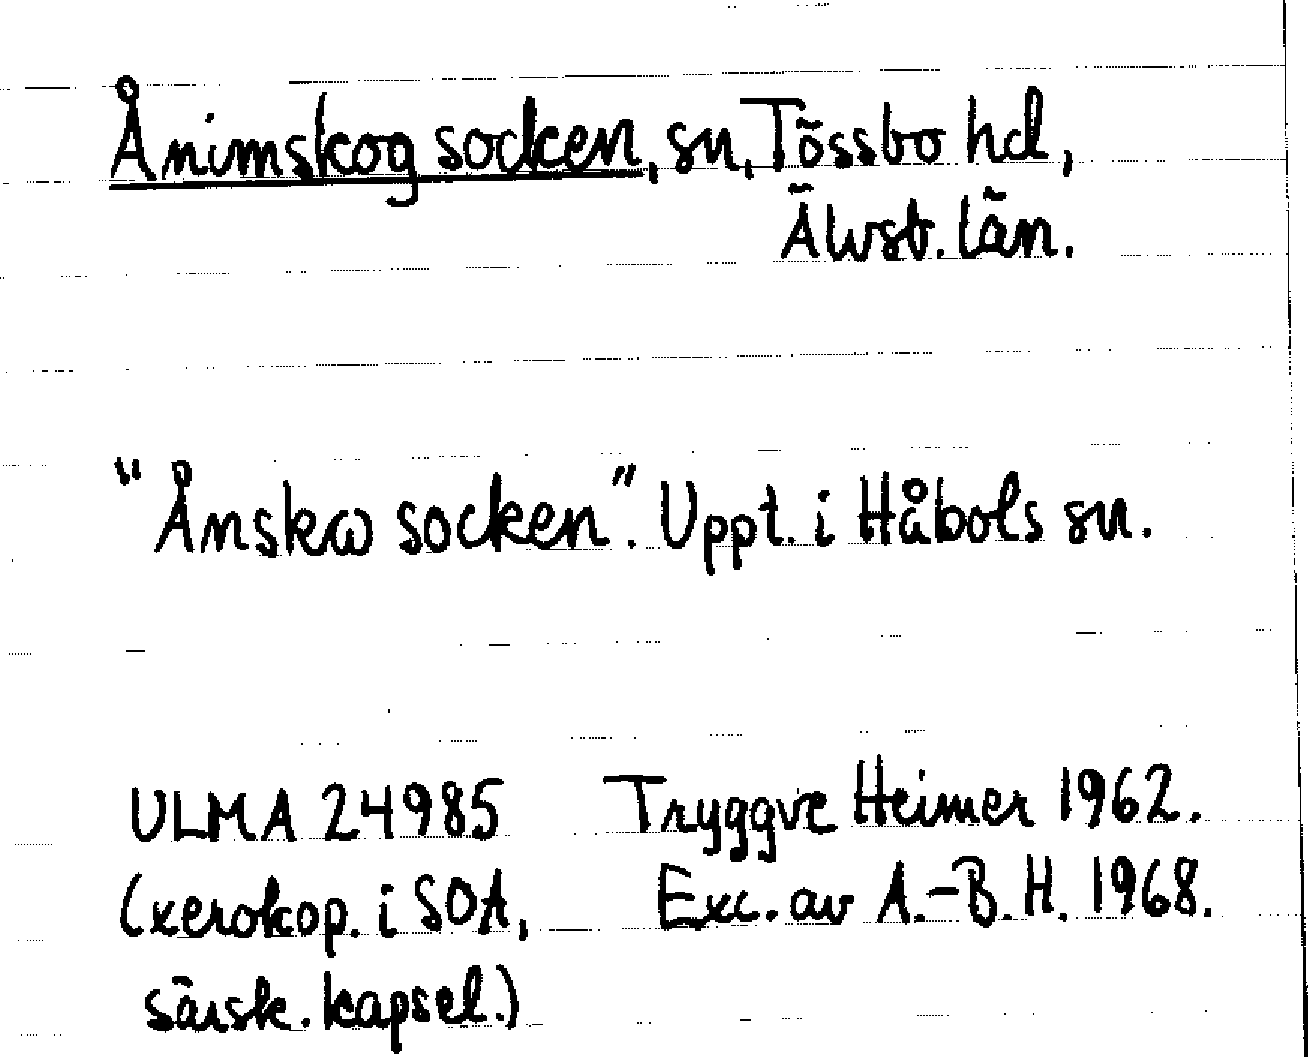 Ånimskog socken, sn, Tössbo hd,
Älvsb. län.
"Ånska socken". Uppt. i Håbols sn.
ULMA 24985 Tryggve Heimer 1962.
(xerokop. i SOA, Exc. av A.-B. H. 1968.
särsk. kapsel.)